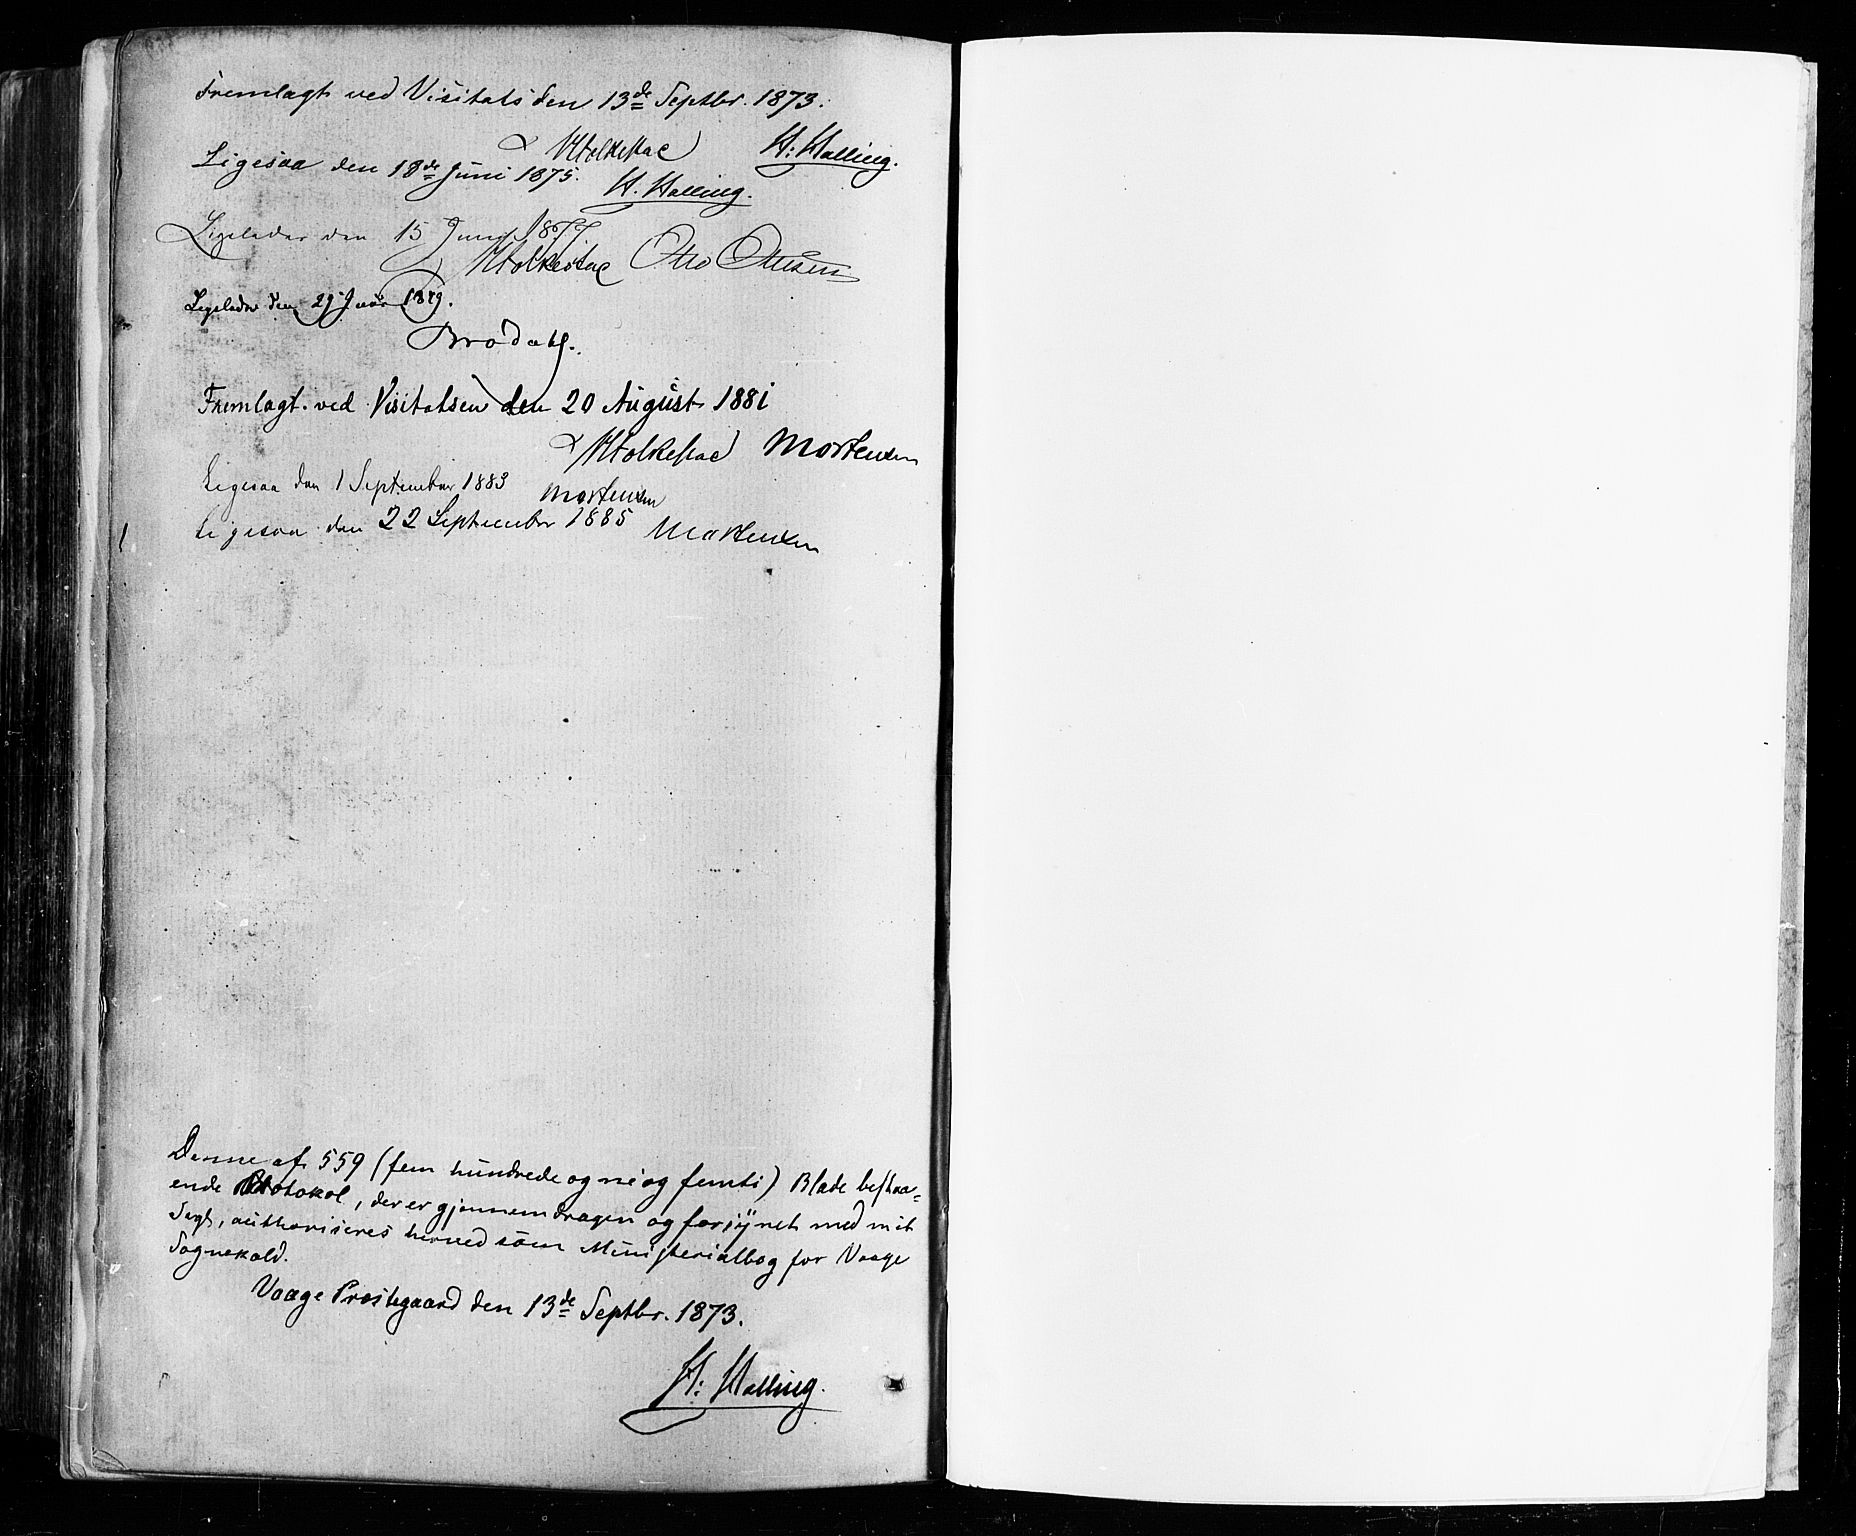 Fremlagt ved Visitats den 13de Septbr. 1873.
H: Halling.
Ligesaa den 18de Juni 1875. H. Halling.
Ligeledes den 15 Juni 1877
Otto Ottesen
Ligeledes den 29 Juni 1879.
Brodahl.
Fremlagt ved Visitatsen den 20 August 1881
Mortensen
Ligesaa den 1 September 1883 Mortensen
Ligesaa den 22 September 1885 Mortensen
Denne af 559 (fem hundrede og ni og femti) Blade bestaa-
ende Protokol, der er gjennemdragen og forsynet med mit
Segl, authoriseres herved som Ministerialbog for Vaage
Sognekald.
Vaage Præstegaard den 13de Septbr. 1873.
H: Halling.